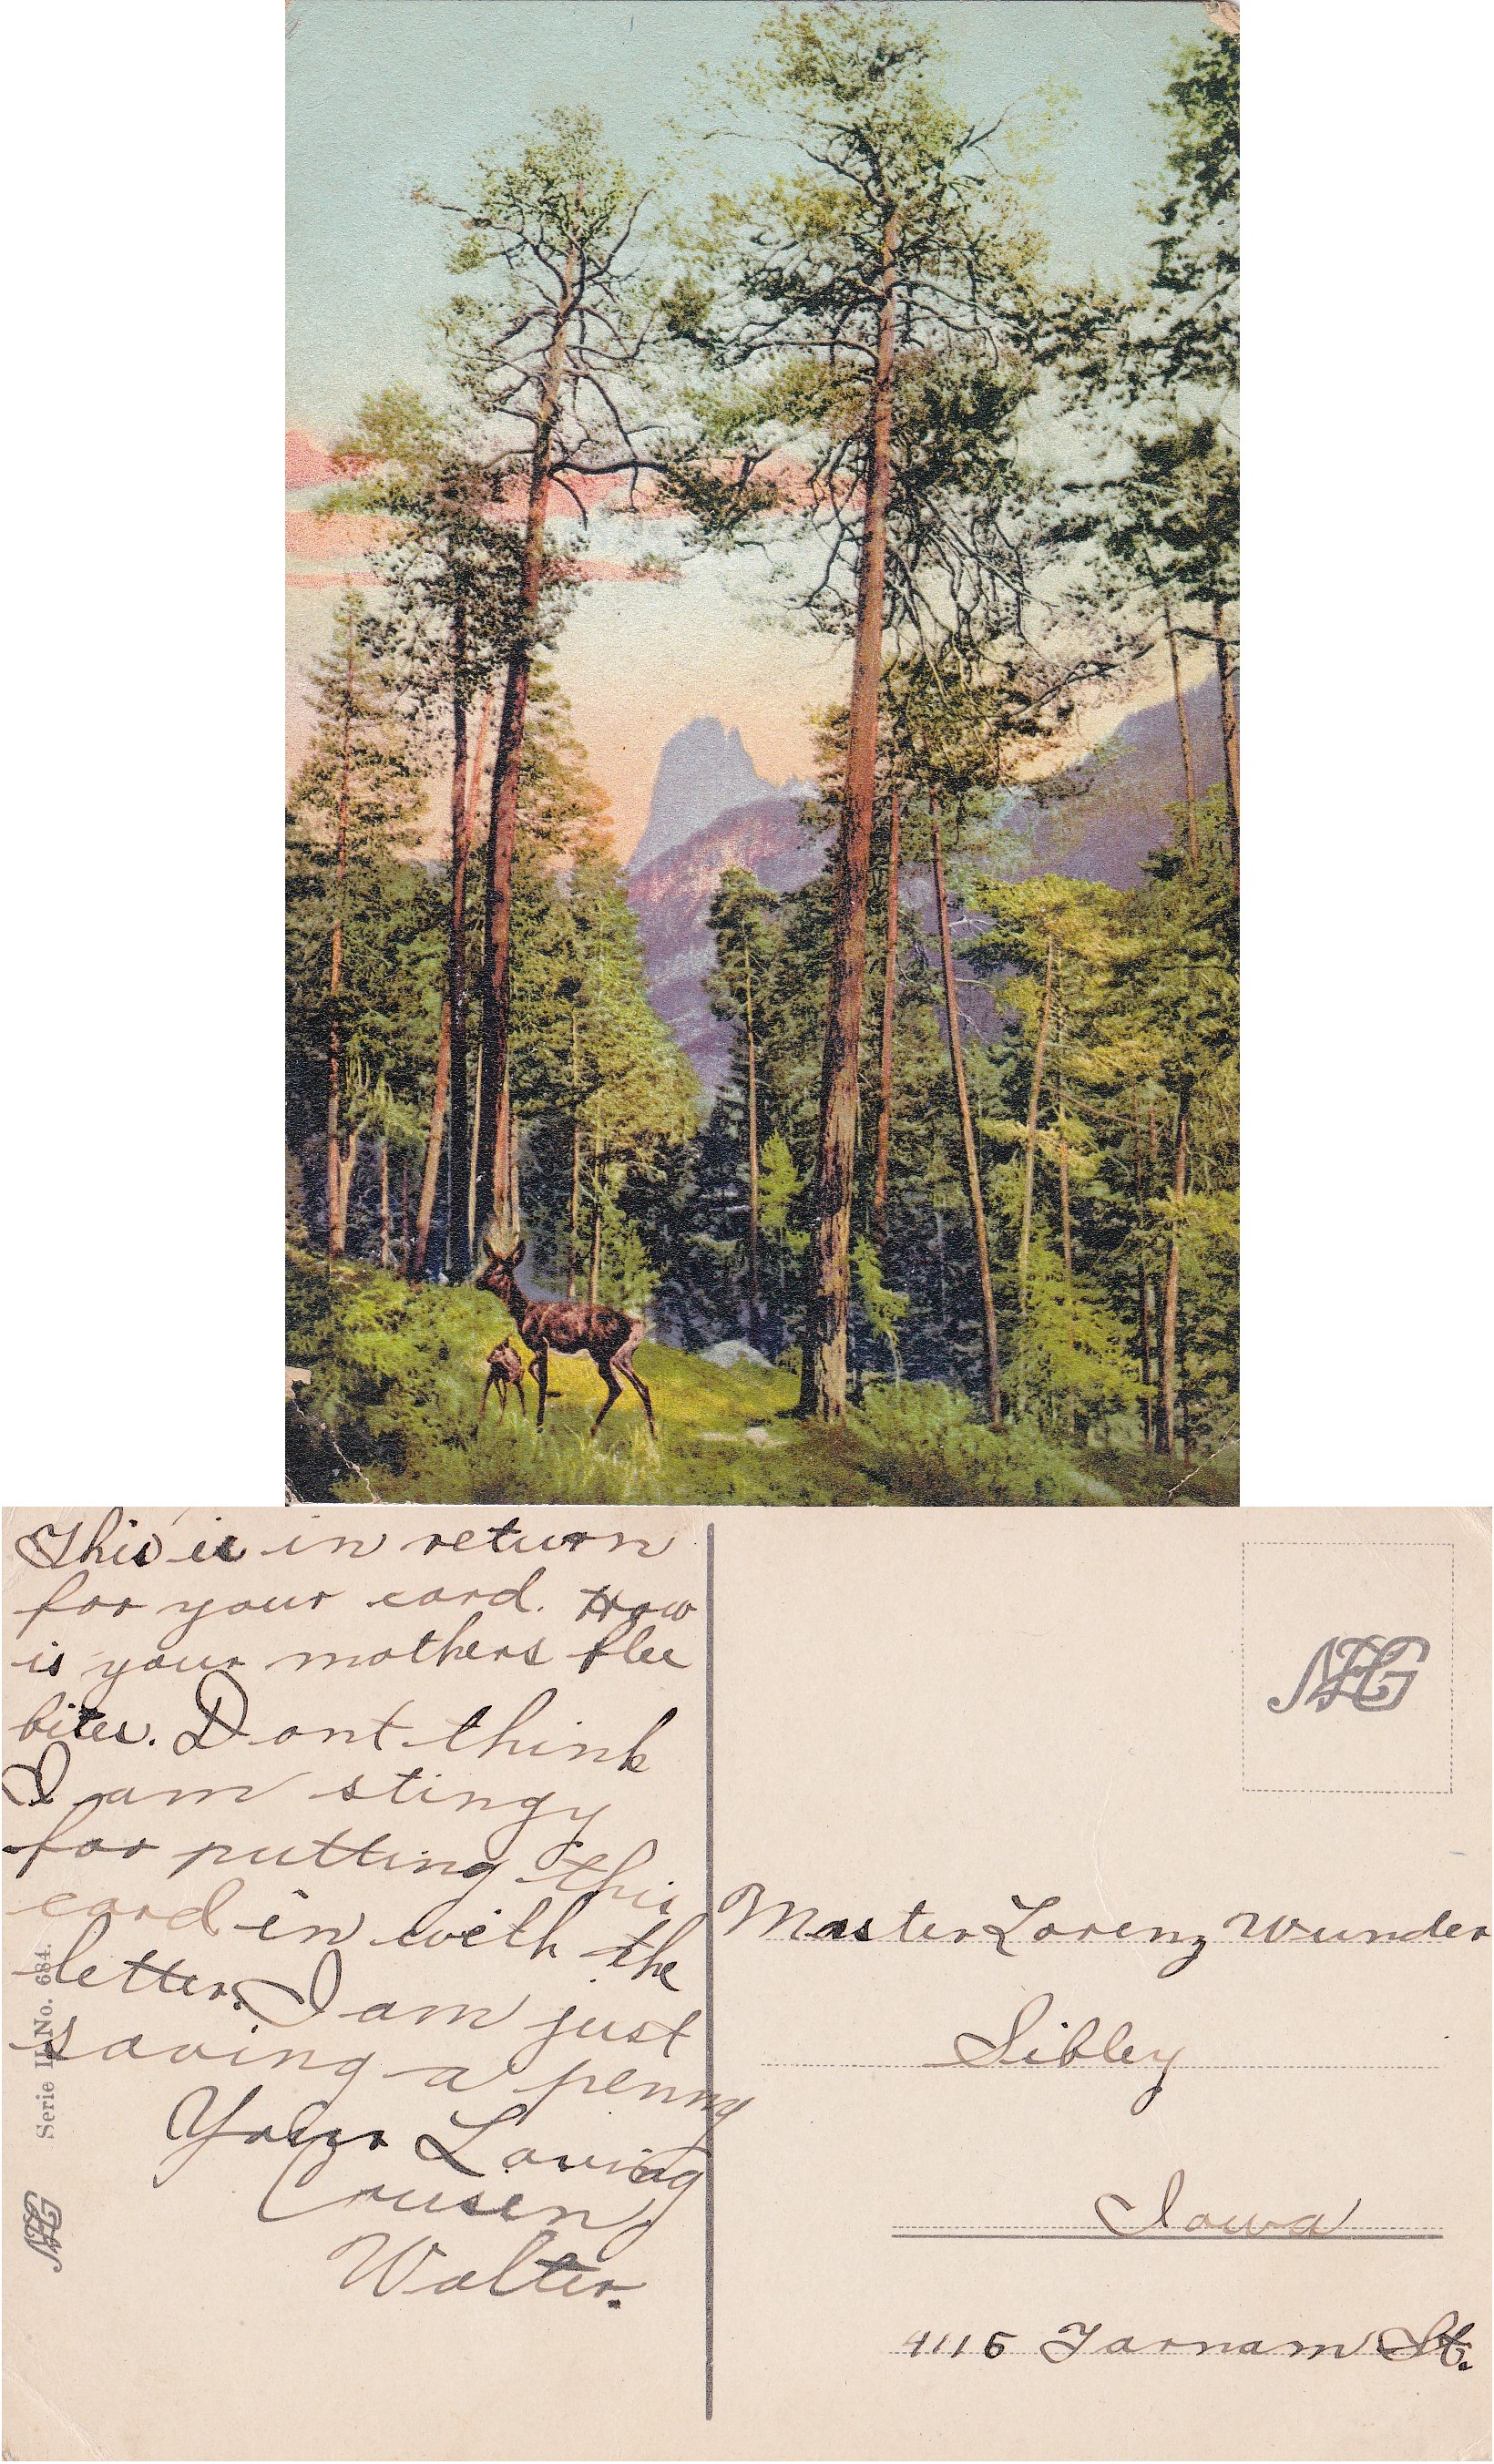 This is in return
for your card. How
is your mothers flee
bites. Dont think
I am stingy
for putting this
card in with the
letter. I am just
saving a penny
Your Loving
Cousen,
Walter.
Serie II. No. 684.
NPG
NPG
Master Lorenz Wunder
Sibley
Iowa
4115 Farnam St.